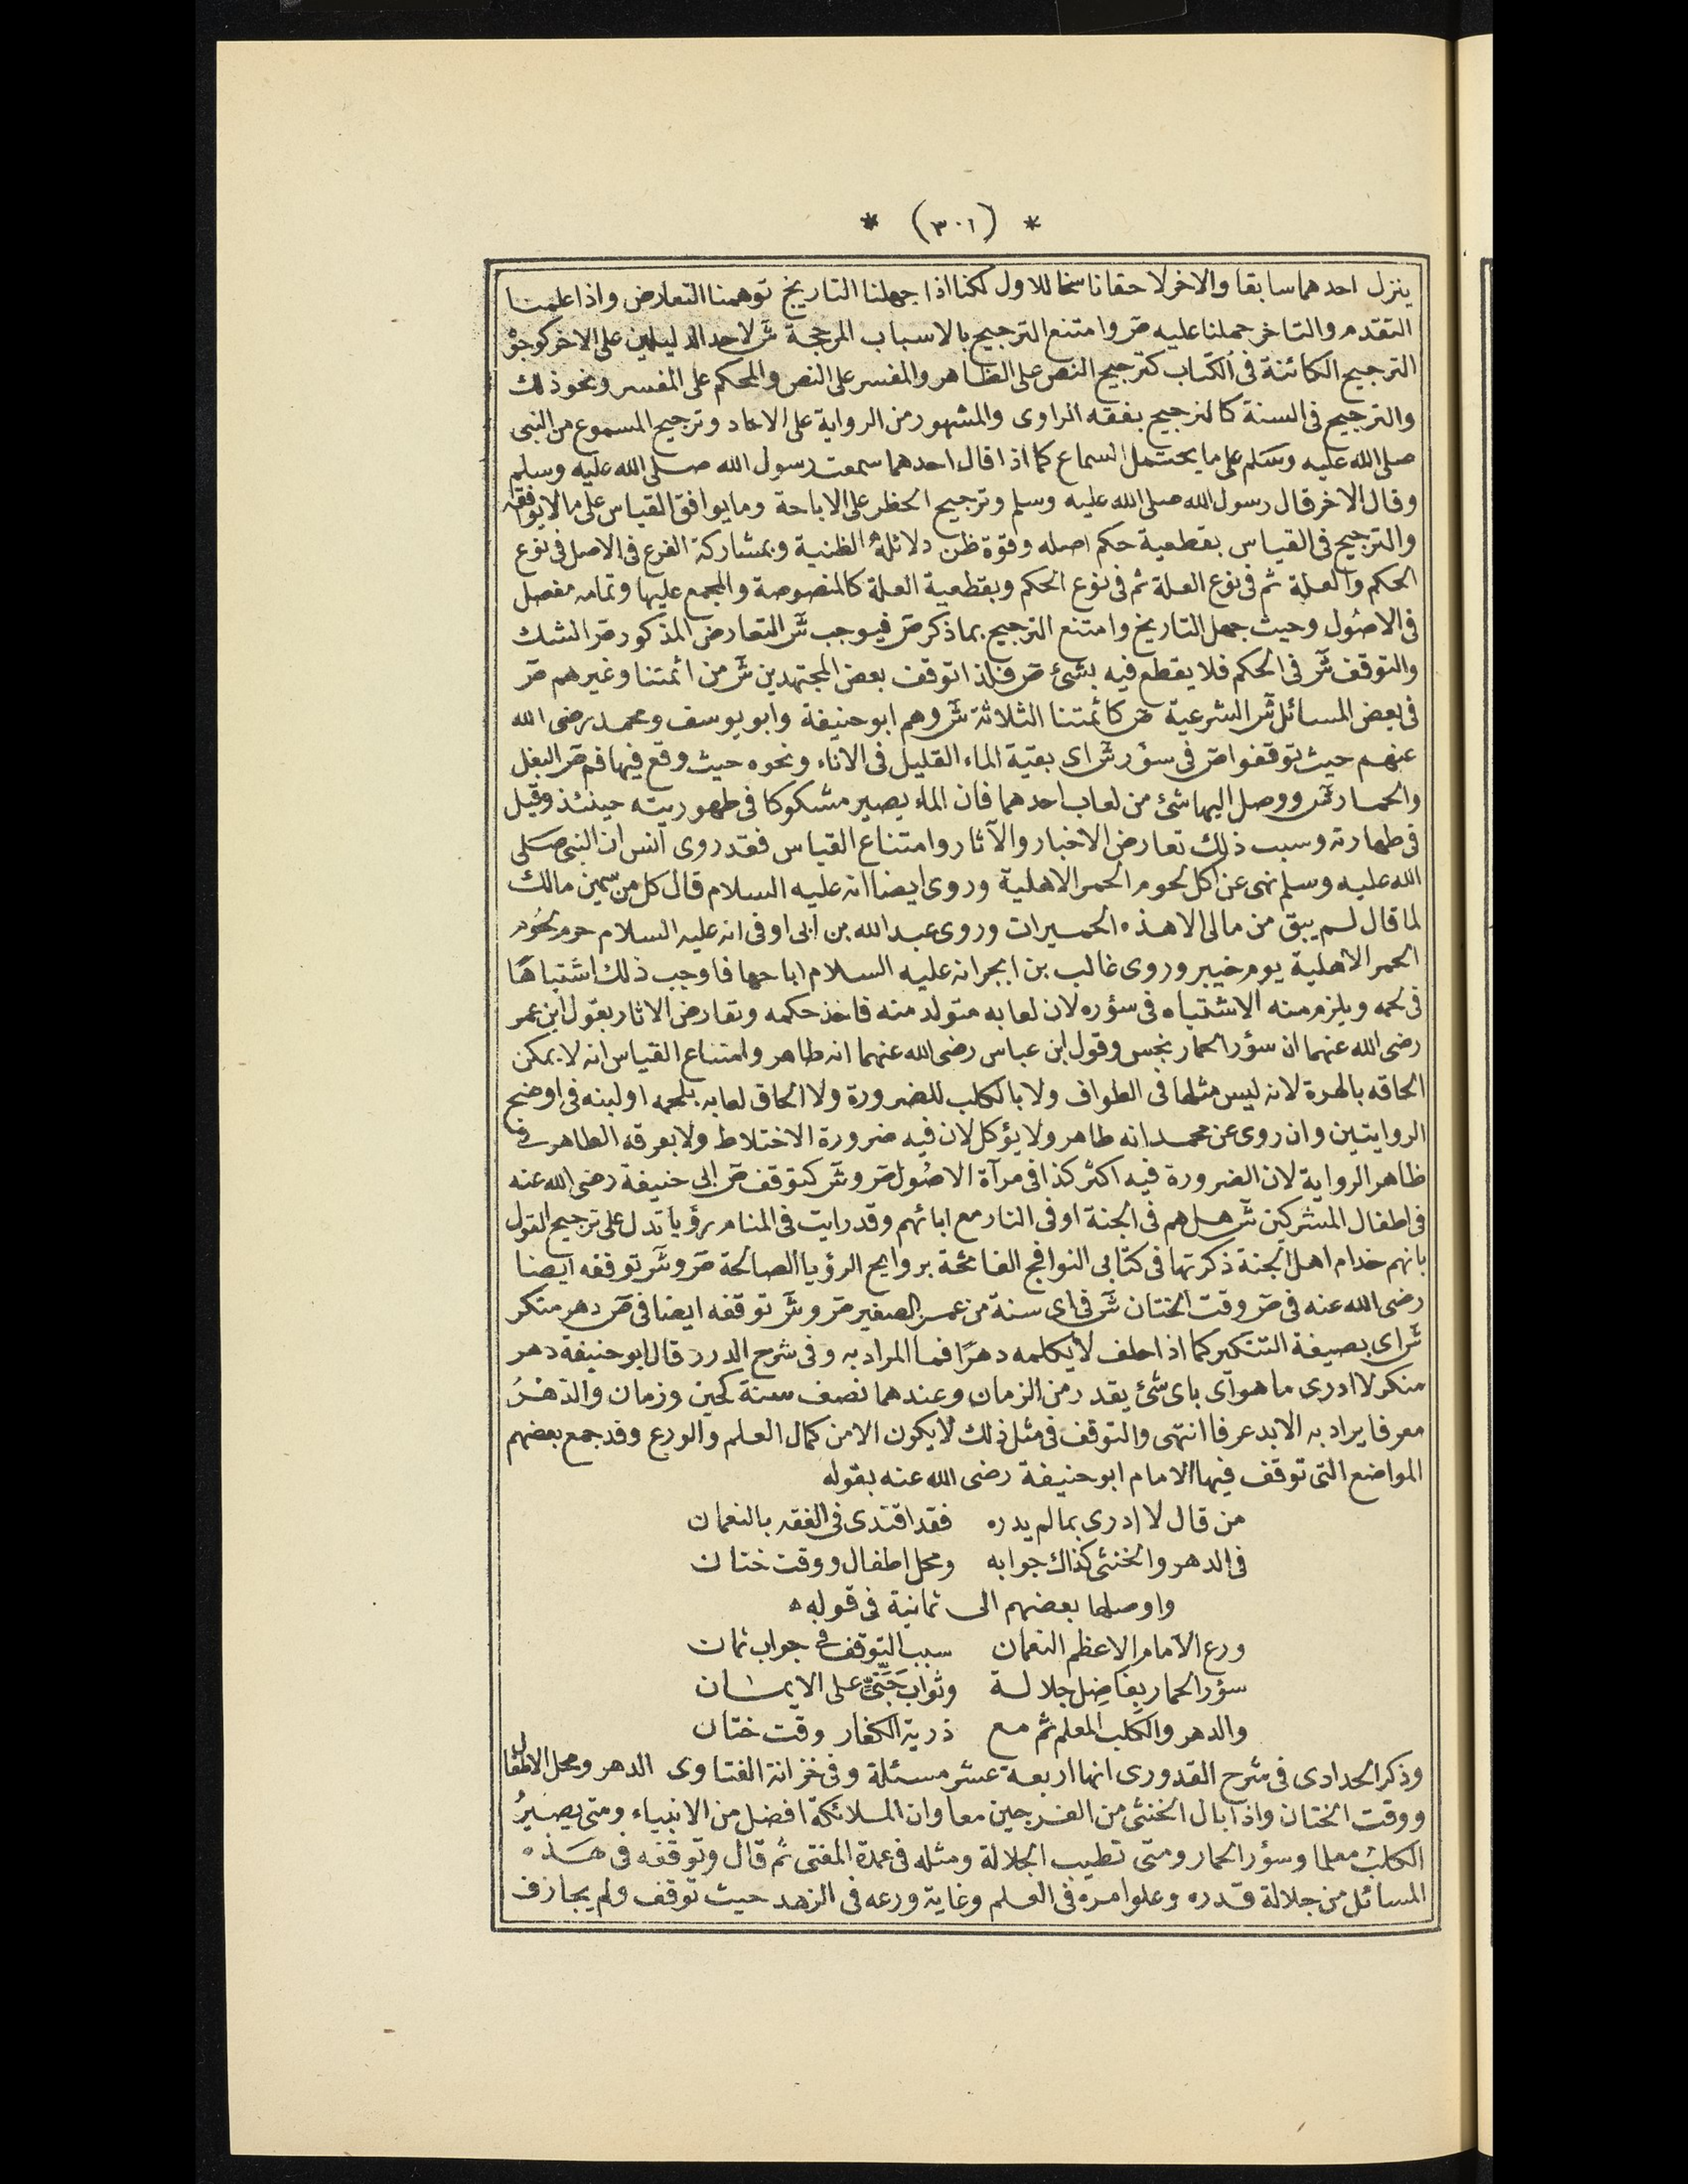 * (٣٠١) *
ينزل احدهما سابقا والاخر لاحقا ناسخا للاول لكنا اذا جهلنا التاريخ توهمنا التعارض واذا علمنا
التقدم والتاخر حملنا عليه ص وامتنع الترجيح بالاسباب المرجحة ش لاحد الدليلين على الاخر كوجوه
الترجيح الكائنة فى الكتاب كترجيح النص على الظاهر والمفسر على النص والمحكم على المفسر ونحو ذلك
والترجيح فى السنة كالترجيح بفقه الراوى والمشهور من الرواية على الاحاد وترجيح المسموع من النبى
صلى الله عليه وسلم على ما يحتمل السماع كما اذا قال احدهما سمعت رسول الله صلى الله عليه وسلم
وقال الاخر قال رسول الله صلى الله عليه وسلم وترجيح الحظر على الاباحة وما يوافق القياس على ما لا يوافقه
والترجيح فى القياس بقطعية حكم اصله وقوة ظن دلائله الظنية وبمشاركة الفرع فى الاصل فى نوع
الحكم والعلة ثم فى نوع العلة ثم فى نوع الحكم وبقطعية العلة كالمنصوصة والمجمع عليها وتمامه مفصل
فى الاصول وحيث جهل التاريخ وامتنع الترجيح بما ذكر ص فيوجب ش التعارض المذكور ص الشك
والتوقف ش فى الحكم فلا يقطع فيه بشئ ص فلذا توقف بعض المجتهدين ش من ائمتنا وغيرهم ص
فى بعض المسائل ش الشرعية ص كائمتنا الثلاثة ش وهم ابو حنيفة وابو يوسف ومحمد رضى الله
عنهم حيث توقفوا ص فى سؤر ش اى بقية الماء القليل فى الاناء ونحوه حيث وقع فيها فم ص البغل
والحمار ش ووصل اليها شئ من لعاب احدهما فان الماء يصير مشكوكا فى طهوريته حينئذ وقيل
فى طهارته وسبب ذلك تعارض الاخبار والآثار وامتناع القياس فقد روى انس ان النبى صلى
الله عليه وسلم نهى عن اكل لحوم الحمر الاهلية وروى ايضا انه عليه السلام قال كل من سمين مالك
لما قال لم يبق من مالى الا هذه الحميرات وروى عبد الله بن ابى اوفى انه عليه السلام حرم لحوم
الحمر الاهلية يوم خيبر وروى غالب بن ابجر انه عليه السلام اباحها فاوجب ذلك اشتباها
فى لحمه ويلزم منه الاشتباه فى سؤره لان لعابه متولد منه فاخذ حكمه وتعارض الاثار بقول ابن عمر
رضى الله عنهما ان سؤر الحمار نجس وقول ابن عباس رضى الله عنهما انه طاهر وامتناع القياس انه لا يمكن
الحاقه بالهرة لانه ليس مثلها فى الطواف ولا بالكلب للضرورة ولا الحاق لعابه بلحمه او لبنه فى اوضح
الروايتين وان روى عن محمد انه طاهر ولا يؤكل لان فيه ضرورة الاختلاط ولا بعرقه الطاهر فى
ظاهر الرواية لان الضرورة فيه اكثر كذا فى مرآة الاصول ص و ش كتوقف ص ابى حنيفة رضى الله عنه
فى اطفال المشركين ش هل هم فى الجنة او فى النار مع ابائهم وقد رايت فى المنام رؤيا تدل على ترجيح القول
بانهم خدام اهل الجنة ذكرتها فى كتابى النوافج الفائحة بروايح الرؤيا الصالحة ص و ش توقفه ايضا
رضى الله عنه فى ص وقت الختان ش فى اى سنة من عمر الصغير ص و ش توقفه ايضا فى ص دهر منكر
ش اى بصيغة التنكير كما اذا حلف لا يكلمه دهرا فما المراد به وفى شرح الدرر قال ابو حنيفة دهر
منكر لا ادرى ما هو اى باى شئ يقدر من الزمان وعندهما نصف سنة كحين وزمان والدهر
معرفا يراد به الابد عرفا انتهى والتوقف فى مثل ذلك لا يكون الا من كمال العلم والورع وقد جمع بعضهم
المواضع التى توقف فيها الامام ابو حنيفة رضى الله عنه بقوله
من قال لا ادرى بما لم يدره فقد اقتدى فى الفقه بالنعمان
فى الدهر والخنثى كذاك جوابه ومحل اطفال ووقت ختان
واوصلها بعضهم الى ثمانية فى قوله
ورع الامام الاعظم النعمان سبب التوقف فى جواب ثمان
سؤر الحمار بفاضل جلالة وثواب جنى على الايمان
والدهر والكلب المعلم ثم مع ذرية الكفار وقت ختان
وذكر الحدادى فى شرح القدورى انها اربعة عشر مسئلة وفى خزانة الفتاوى الدهر ومحل الاطفال
ووقت الختان واذا بال الخنثى من الفرجين معا وان الملائكة افضل من الانبياء ومتى يصير
الكلب معلما وسؤر الحمار ومتى تطيب الجلالة ومثله فى عمدة المفتى ثم قال وتوقفه فى هذه
المسائل من جلالة قدره وعلو امره فى العلم وغاية ورعه فى الزهد حيث توقف ولم يجازف